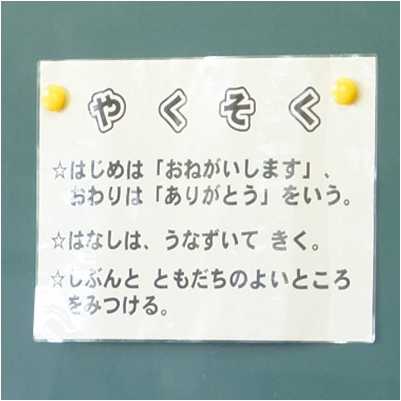 やくそく
☆はじめは「おねがいします」、
おわりは「ありがとう」をいう。
☆はなしは、うなずいて きく。
☆じぶんと ともだちのよいところ
をみつける。